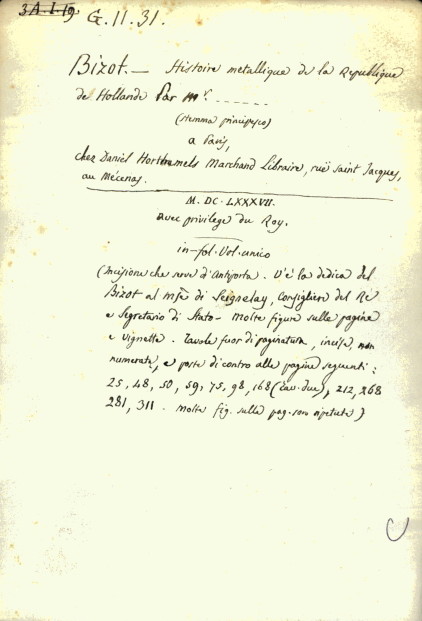 3 A. I. 19 G. 11. 31.
Bizot. — Histoire metallique de la Republique
de Hollande Par Mr. ------
(stemma principesco)
a Paris,
chez Daniel Horthemels Marchand Libraire, ruë saint Jacques,
au Mécenas.
M. DC. LXXXVII.
avec privilege du Roy.
in-fol. Vol. unico
(Incisione che serve d'antiporta. V'é la dedica del
Bizot al Mse di Seignelay, Consigliere del Ré
e Segretario di Stato - molte figure sulle pagine
e vignette. Tavole fuor di paginatura, incise, non
numerate, e poste di contro alle pagine seguenti:
25, 48, 50, 59, 75, 98, 168 (tav. due), 212, 268
281, 311. Molte fig. sulle pag. sono ripetute)